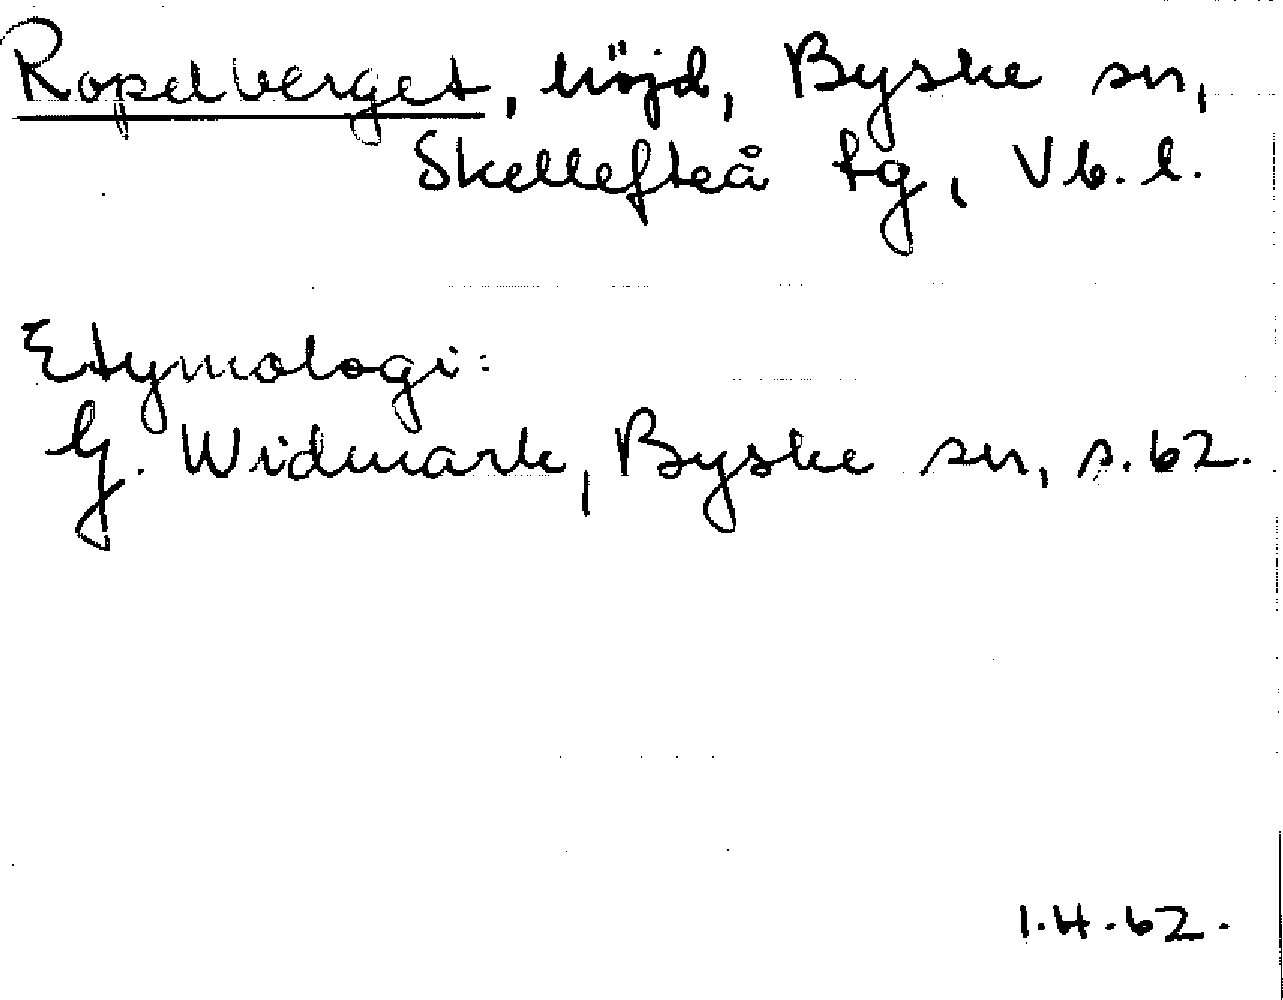 Ropelberget, höjd, Byske sn,
Skellefteå tg, Vb. l.
Etymologi:
G. Widmark, Byske sn, s. 62.
1.H.62.